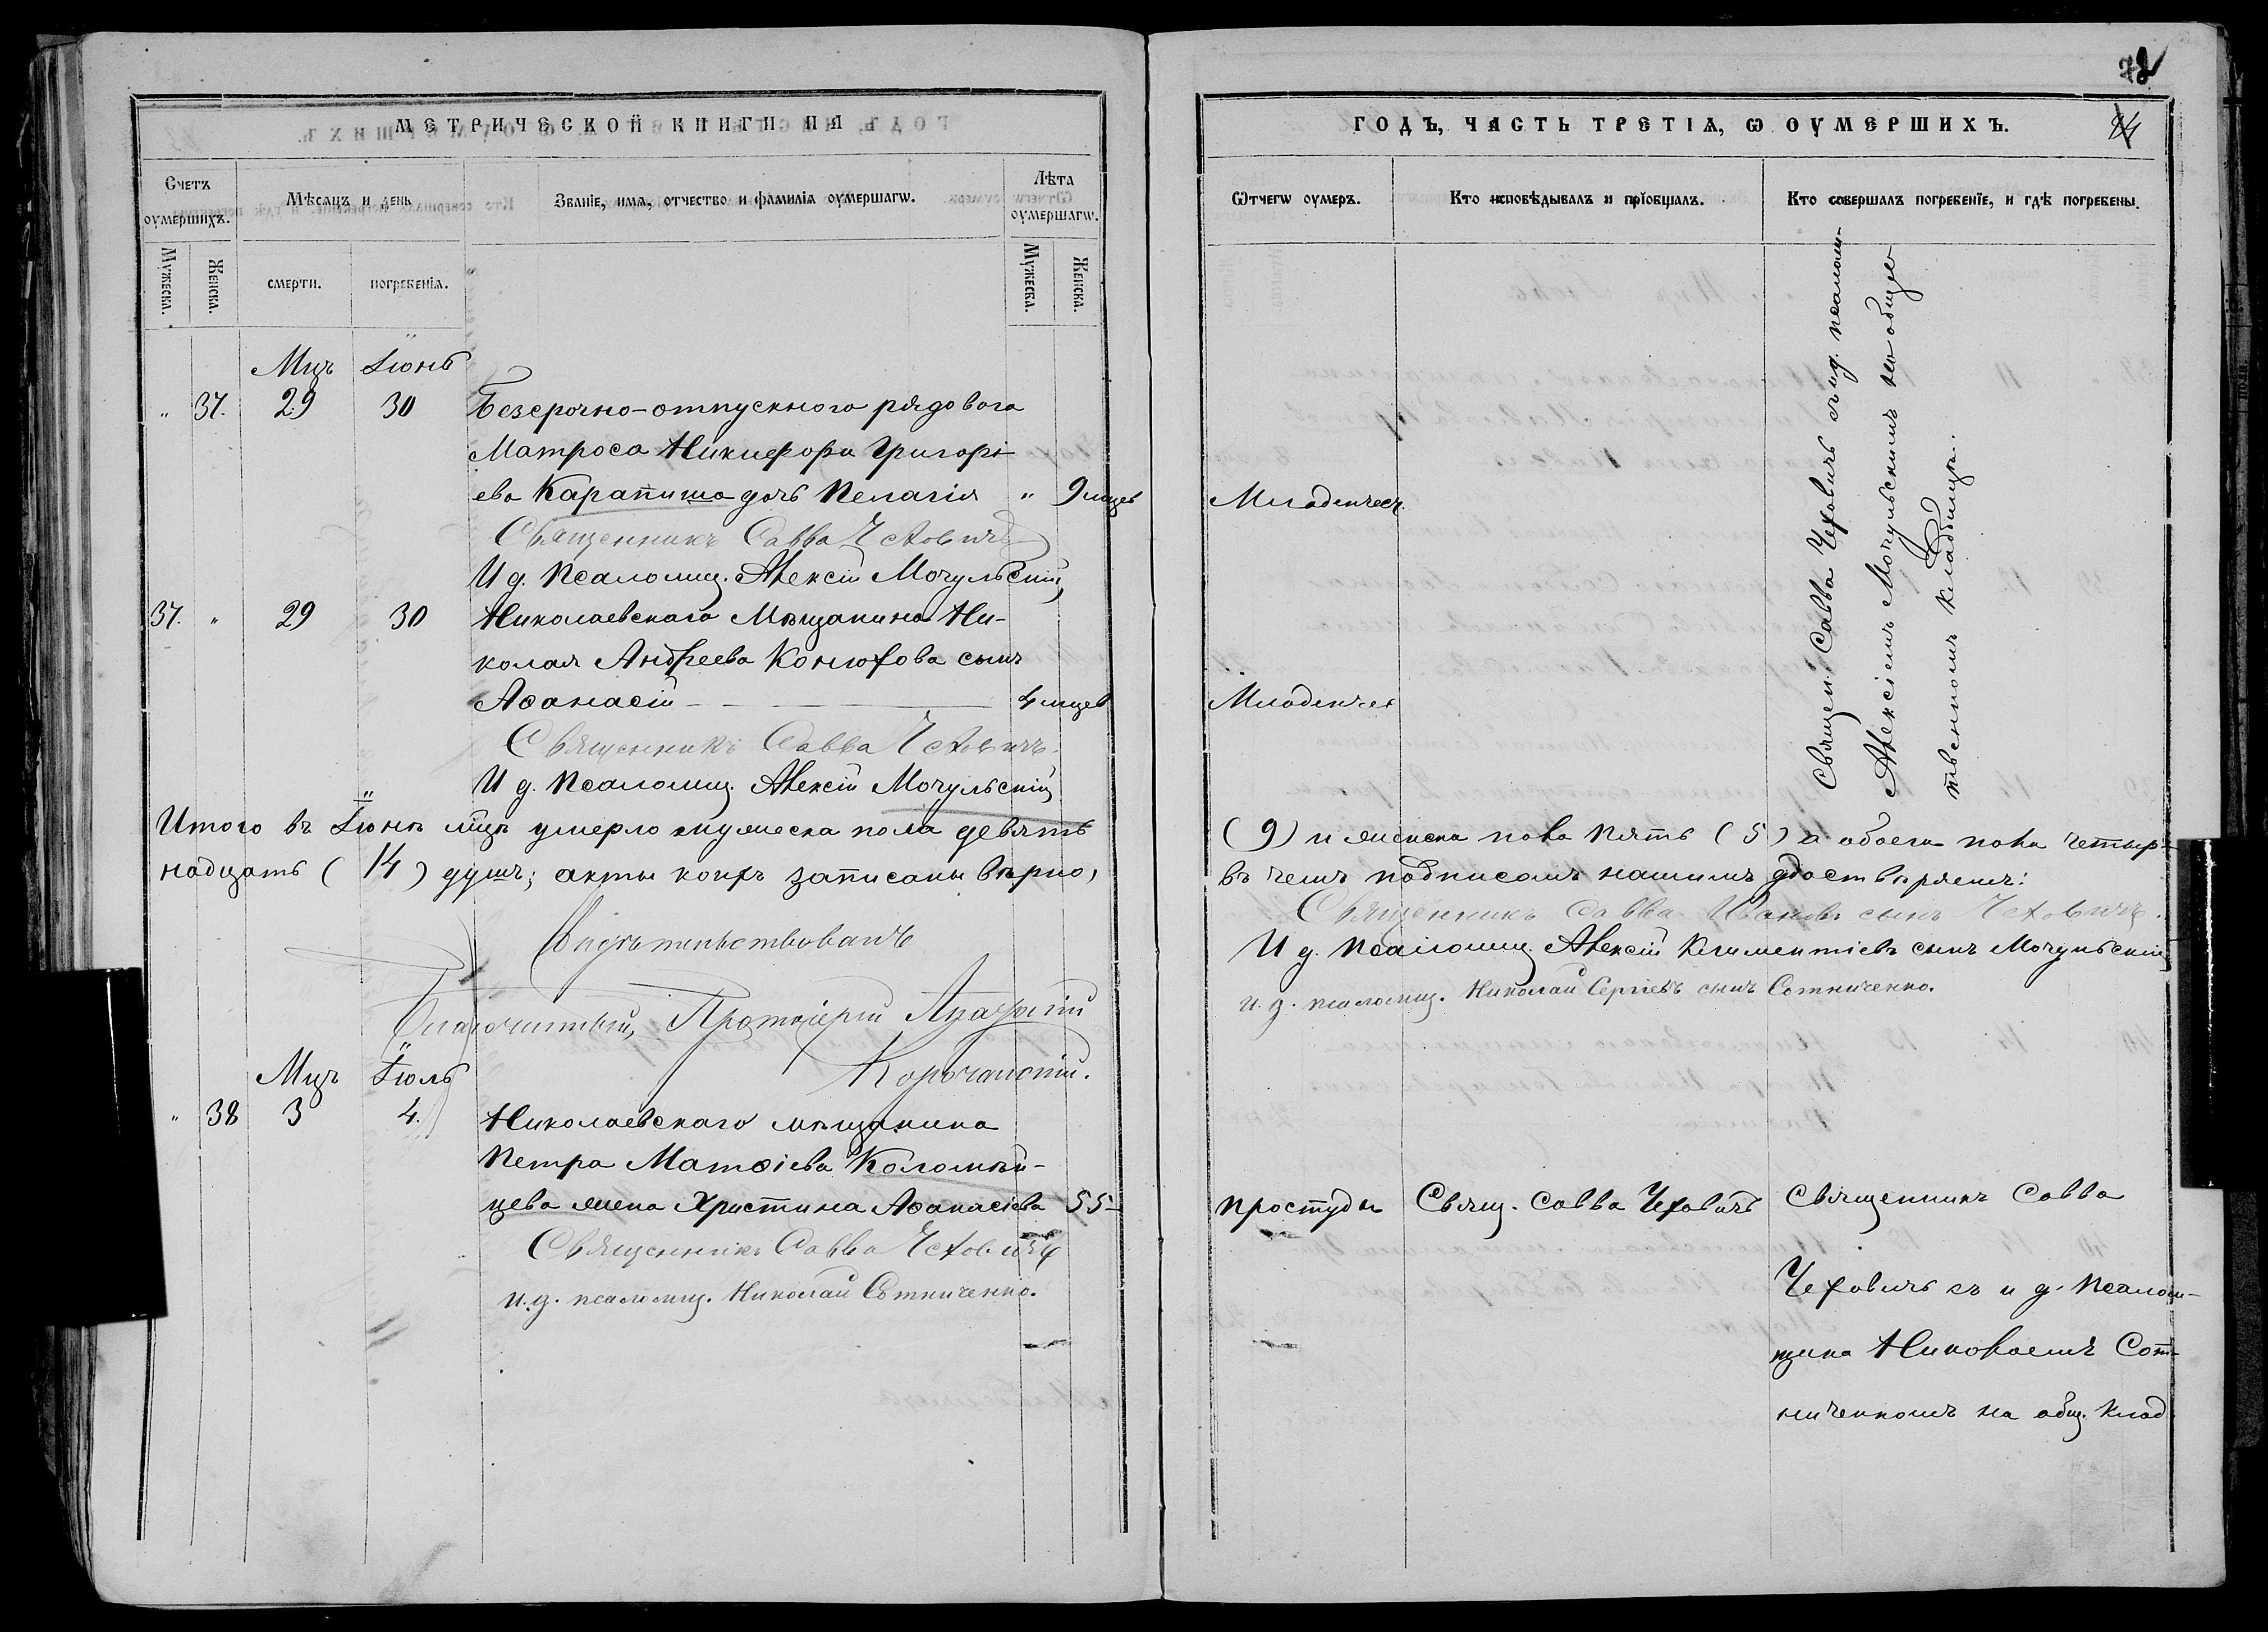 78
МЕТРИЧЕСКОЙ КНИГИ НА
ГОДЪ, ЧАСТЬ ТРЕТІЯ, Ѡ ОУМЕРШИХЪ.
Счетъ оумершихъ.
Мѣсяцъ и день
Званіе, имя, отчество и фамилія оумершагѡ.
Лѣта оумершагѡ.
Мужеска.
Женска.
смерти.
погребенія.
Мужеска.
Женска.
Ѿчегѡ оумеръ.
Кто исповѣдывалъ и пріобщалъ.
Кто совершалъ погребеніе, и гдѣ погребены.
Мцъ Іюнь
" 37. 29 30 Безсрочно-отпускного рядоваго
Матроса Никифора Григорі-
ева Карапиша дочь Пелагія " 9 мцев Младенчес.
Священникъ Савва Чеховичъ
И д. Псаломщ. Алексій Мочульскій
37. " 29 30 Николаевскаго Мѣщанина Ни-
колая Андреева Конюхова сынъ
Аѳанасій 4 мцев Младенчес
Священникъ Савва Чеховичъ.
И д. Псаломщ. Алексій Мочульскій
Священ. Савва Чеховичъ съ и д. псаломщ-
Алексіемъ Мочульскимъ на общес-
твенномъ кладбищѣ.
Итого въ Іюнѣ мцѣ умерло мужеска пола девять (9) и женска пола пять (5) а обоего пола четыр-
надцать (14) душъ; акты коихъ записаны вѣрно, въ чемъ подписомъ нашимъ удоствѣряемъ:
Священникъ Савва Ивановъ сынъ Чеховичъ.
И д. Псаломщ. Алексій Климентіевъ сынъ Мочульскій
и. д. псаломщ. Николай Сергіевъ сынъ Сотниченко.
Свидѣтельствовалъ
Благочинный, Протоіерей
Корчанскій.
Мцъ Іюль
" 38 3 4. Николаевскаго мѣщанина
Петра Матѳіева Коломый-
цева жена Христина Аѳанасіева 55 простуды Свящ. Савва Чеховичъ Священникъ Савва
Священникъ Савва Чеховичъ
и. д. псаломщ. Николай Сотниченко.
Чеховичъ съ и д. Псалом-
щика Николаемъ Сот-
ниченкомъ на общ. клад.